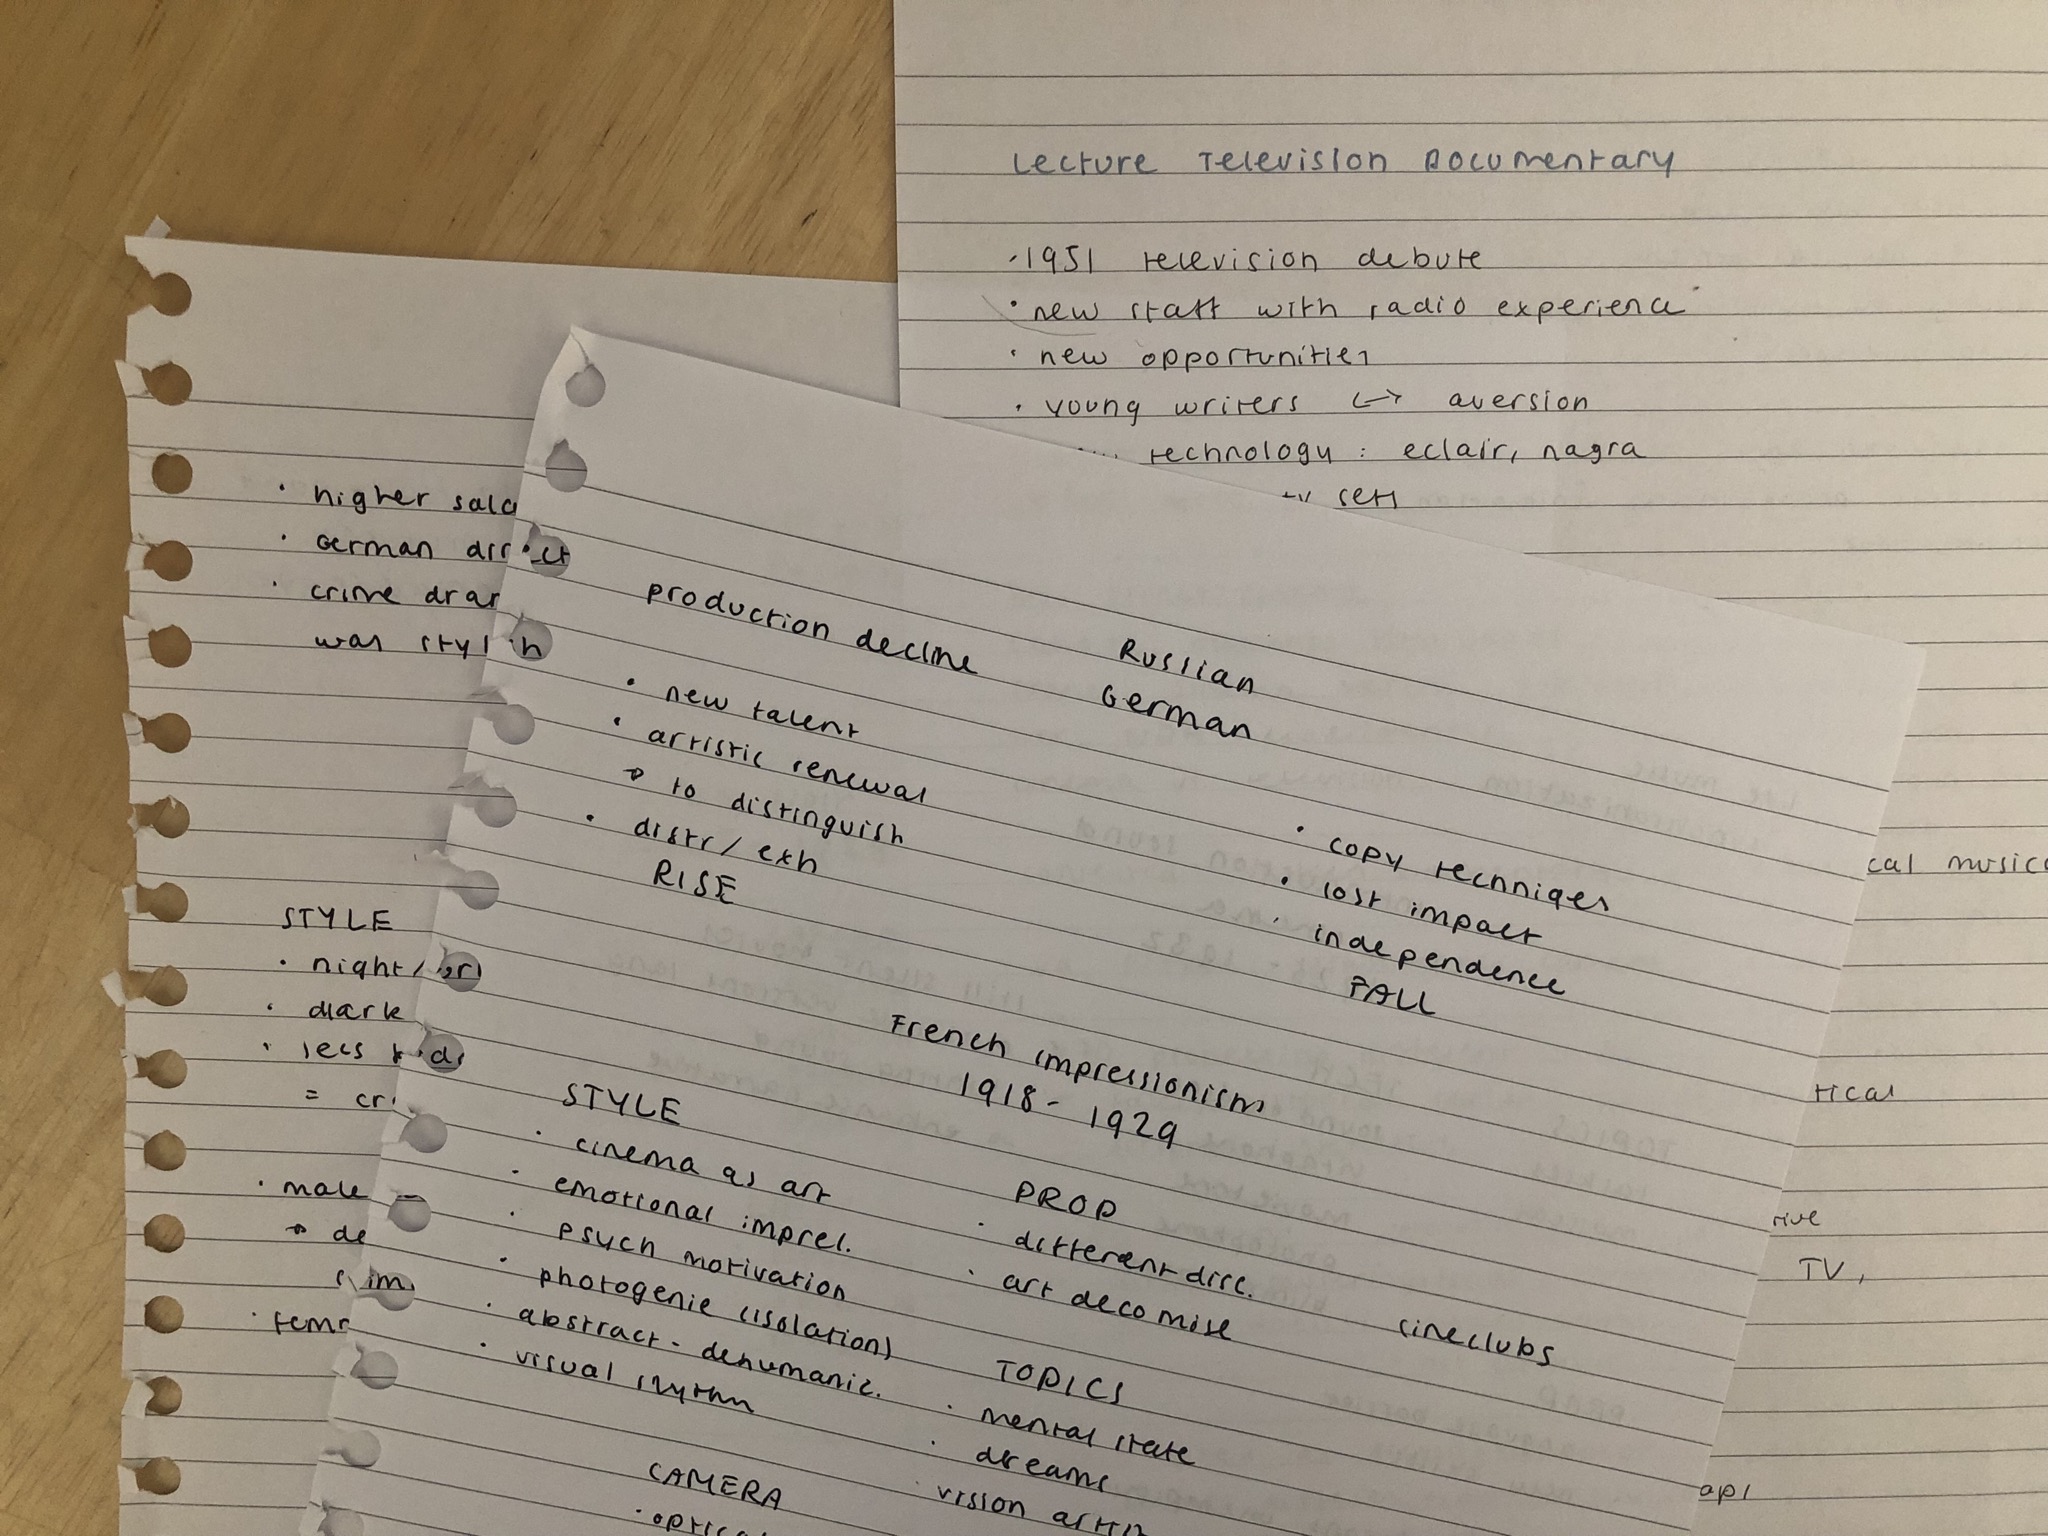 Lecture Television Documentary
· 1951 television debute
· new staff with radio experience
· new opportunities
· young writers <-> aversion
technology : eclair, nagra
tv sets
cal musica
tical
TV,
· higher sala
· German direct
· crime dra
was stylish
STYLE
· night/
· dark
· less kids
= cr
· male -
→ de
· fema
production decline
Russian
German
· new talent
· artistic renewal
→ to distinguish
· distr/exh
RISE
· copy techniqes
· lost impact
· independence
FALL
French impressionism
1918 - 1929
STYLE
· cinema as art
· emotional impres.
· psych motivation
· photogenie (isolation)
· abstract - dehumaniz.
· visual rhythm
PROP
· different disc.
· art deco mise
cineclubs
TOPICS
· mental state
· dreams
vision
CAMERA
· optica